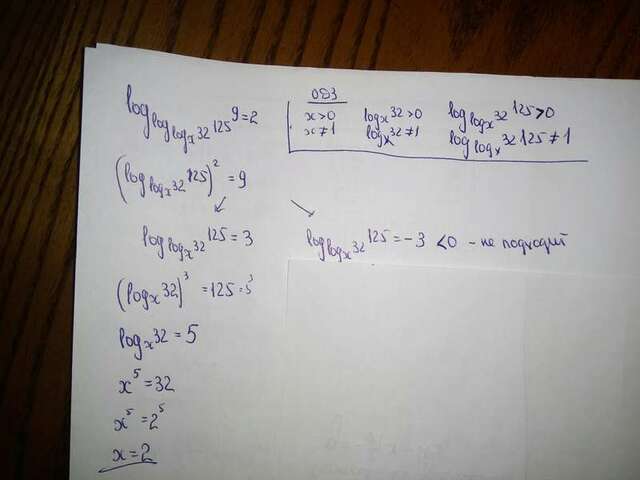 log_{log_{log_x 32} 125} 9 = 2
ОДЗ
x>0   log_x 32 >0   log_{log_x 32} 125 >0
x≠1   log_x 32 ≠1   log_{log_x 32} 125 ≠ 1
(log_{log_x 32} 125)^2 = 9
↙ ↘
log_{log_x 32} 125 = 3   log_{log_x 32} 125 = -3 <0 - не подходит
(log_x 32)^3 = 125 = 5^3
log_x 32 = 5
x^5 = 32
x^5 = 2^5
x = 2